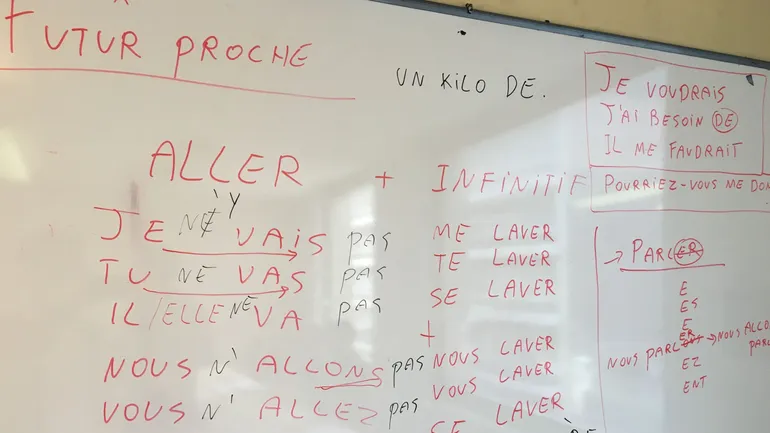 FUTUR PROCHE
UN KILO DE.
JE VOUDRAIS
J'AI BESOIN DE
IL ME FAUDRAIT
POURRIEZ-VOUS ME DON
ALLER + INFINITIF
Y
JE NE VAIS PAS ME LAVER
TU NE VAS PAS TE LAVER
IL/ELLE NE VA PAS SE LAVER
+
NOUS N'ALLONS PAS NOUS LAVER
VOUS N'ALLEZ PAS VOUS LAVER
SE LAVER
→ PARLER
E
ES
E
ER
NOUS PARL → NOUS ALLO
PARL
EZ
ENT